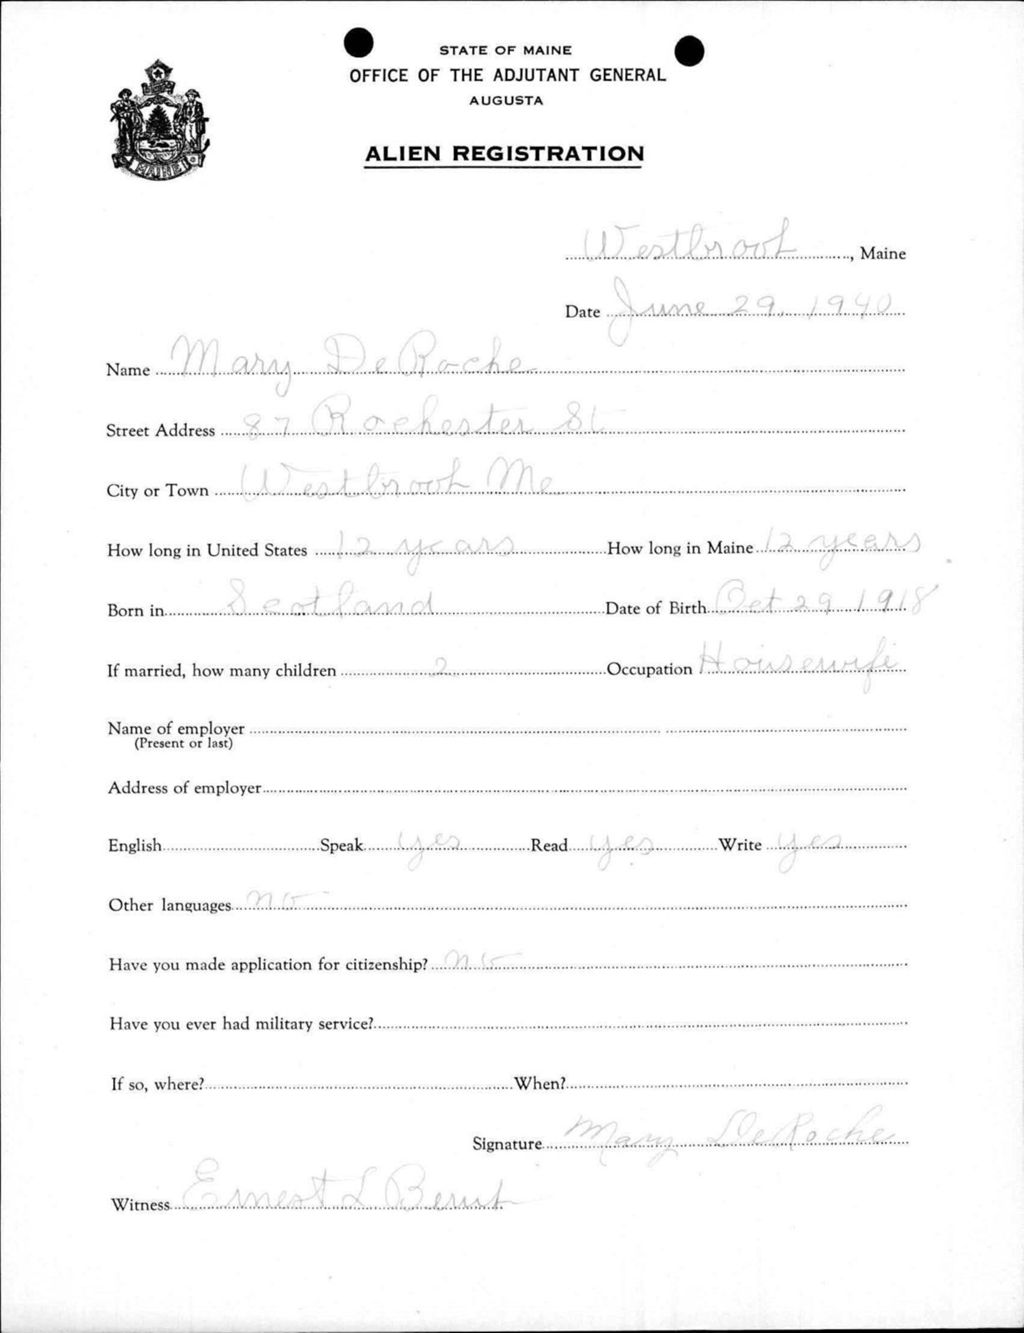 STATE OF MAINE
OFFICE OF THE ADJUTANT GENERAL
AUGUSTA
ALIEN REGISTRATION
MAINE
Westbrook, Maine
Date June 29, 1940
Name Mary DeRoche
Street Address 87 Rochester St
City or Town Westbrook Me
How long in United States 12 years How long in Maine 12 years
Born in Scotland Date of Birth Oct 29 1918
If married, how many children 2 Occupation Housewife
Name of employer
(Present or last)
Address of employer
English Speak yes Read yes Write yes
Other languages no
Have you made application for citizenship? no
Have you ever had military service?
If so, where? When?
Signature Mary DeRoche
Witness Ernest L